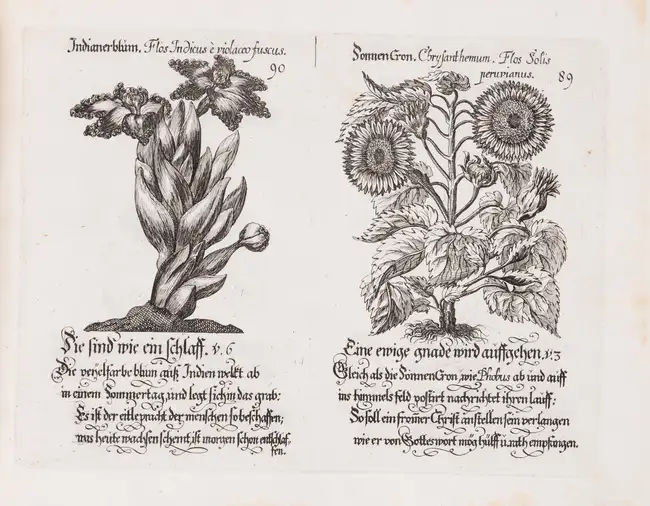 Indianerblum. Flos Indicus è violaceo fuscus.
90
Sie sind wie ein schlaff. v. 6
Die veyelfarbe blum auß Indien welkt ab
in einem Sommertag und legt sich in das grab:
Es ist der eitle pracht der menschen so beschaffen;
was heute wachsen scheint, ist morgen schon entschlaf
fen.
Sonnen Cron. Chrysanthemum. Flos Solis
peruvianus.
89
Eine ewige gnade wird auffgehen. v. 3
Gleich als die Sonnen Cron, wie Phœbus ab und auff
ins himmels feld postirt nachrichtet ihren lauff:
So soll ein fromer Christ anstellen sein verlangen
wie er von Gottes wort mög hülff u. rath empfangen.